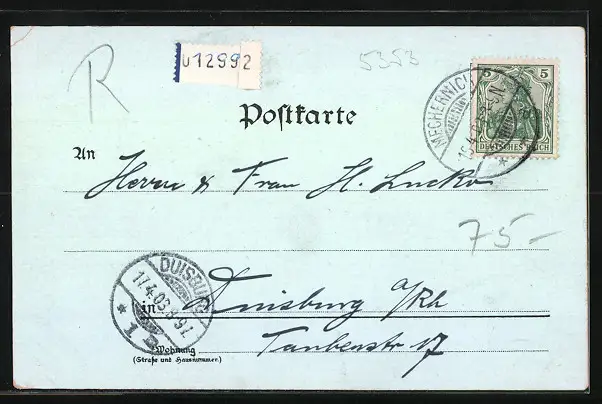 R
012992
5353
5 5
DEUTSCHES REICH
MECHERNICH
Postkarte
An
Herrn & Frau H. Lucko
75-
DUISBURG
17.4.03.8-9V.
* 1
in Duisburg a/Rh
Taubenstr 17
Wohnung
(Straße und Hausnummer)